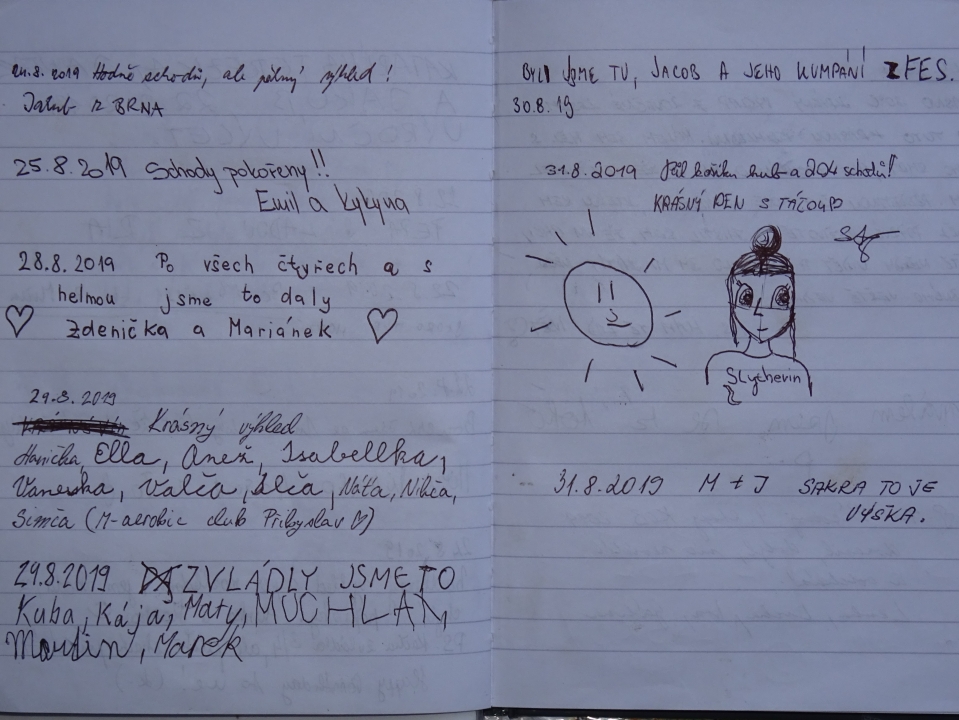 24.8.2019 Hodně schodů, ale pěkný výhled!
Jakub z BRNA
25.8.2019 Schody pokořeny!!
Emil a Kykyna
28.8.2019 Po všech čtyřech a s
helmou jsme to daly
Zdenička a Mariánek
29.8.2019
Krásný výhled
Hanička, Ella, Anež, Isabellka,
Vaneska, Valča, Elča, Naťa, Nikča,
Simča (M-aerobic club Přibyslav ♡)
29.8.2019 ZVLÁDLY JSME TO
Kuba, Kája, Maty, MUCHLAK,
Martin, Marek
BYLI JSME TU, JACOB A JEHO KUMPÁNI Z FES.
30.8.19
31.8.2019 Půl košíku hub a 204 schodů!
KRÁSNÝ DEN S TÁTOU
Slytherin
31.8.2019 M + J SAKRA TO JE
VÝŠKA.